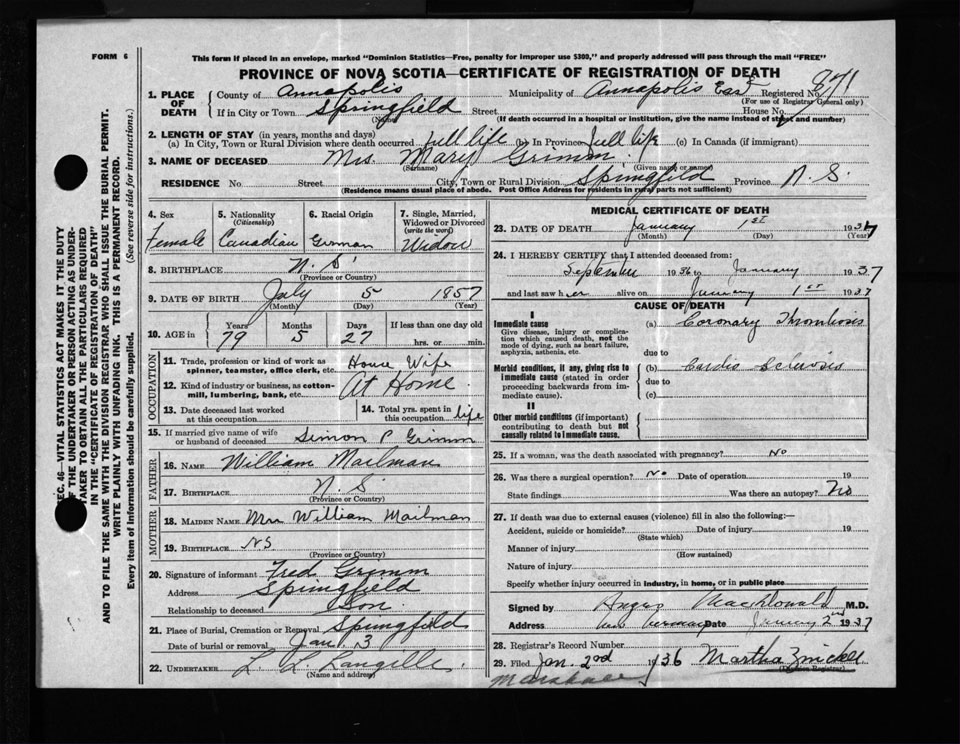 FORM 6
This form if placed in an envelope, marked "Dominion Statistics—Free, penalty for improper use $300," and properly addressed will pass through the mail "FREE"
PROVINCE OF NOVA SCOTIA—CERTIFICATE OF REGISTRATION OF DEATH
1. PLACE OF DEATH County of Annapolis Municipality of Annapolis East Registered No. 871
(For use of Registrar General only)
If in City or Town Springfield Street House No.
(Name) (If death occurred in a hospital or institution, give the name instead of street and number)
2. LENGTH OF STAY (in years, months and days)
(a) In City, Town or Rural Division where death occurred full life (b) In Province full life (c) In Canada (if immigrant)
3. NAME OF DECEASED Mrs. Mary Grimm
(Surname) (Given name or names)
RESIDENCE No. Street City, Town or Rural Division Springfield Province N. S.
(Residence means usual place of abode. Post Office Address for residents in rural parts not sufficient)
4. Sex Female
5. Nationality (Citizenship) Canadian
6. Racial Origin German
7. Single, Married, Widowed or Divorced (write the word) Widow
8. BIRTHPLACE N. S.
(Province or Country)
9. DATE OF BIRTH July 5 1857
(Month) (Day) (Year)
10. AGE in Years 79 Months 5 Days 27 If less than one day old hrs. or min.
OCCUPATION
11. Trade, profession or kind of work as spinner, teamster, office clerk, etc. House Wife
12. Kind of industry or business, as cotton-mill, lumbering, bank, etc. At Home
13. Date deceased last worked at this occupation
14. Total yrs. spent in this occupation life
15. If married give name of wife or husband of deceased Simon P Grimm
FATHER
16. NAME William Mailman
17. BIRTHPLACE N. S.
(Province or Country)
MOTHER
18. MAIDEN NAME Mrs William Mailman
19. BIRTHPLACE NS
(Province or Country)
20. Signature of informant Fred Grimm
Address Springfield
Relationship to deceased Son
21. Place of Burial, Cremation or Removal Springfield
Date of burial or removal Jan. 3
22. UNDERTAKER L. L Langille
(Name and address)
MEDICAL CERTIFICATE OF DEATH
23. DATE OF DEATH January 1st 1937
(Month) (Day) (Year)
24. I HEREBY CERTIFY that I attended deceased from:
September 1936 to January 1937
and last saw her alive on January 1st 1937
CAUSE OF DEATH
I
Immediate cause
Give disease, injury or complication which caused death, not the mode of dying, such as heart failure, asphyxia, asthenia, etc.
(a) Coronary Thrombosis
due to
Morbid conditions, if any, giving rise to immediate cause (stated in order proceeding backwards from immediate cause).
(b) Cardio Sclerosis
due to
(c)
II
Other morbid conditions (if important) contributing to death but not causally related to immediate cause.
25. If a woman, was the death associated with pregnancy? No
26. Was there a surgical operation? No Date of operation 19
State findings Was there an autopsy? No
27. If death was due to external causes (violence) fill in also the following:—
Accident, suicide or homicide? Date of injury 19
(State which)
Manner of injury
(How sustained)
Nature of injury
Specify whether injury occurred in industry, in home, or in public place
Signed by Angus MacDonald M.D.
Address New Germany Date January 2nd 1937
28. Registrar's Record Number
29. Filed Jan. 2nd 1936 Martha Zwicker
(Division Registrar)
SEC. 46—VITAL STATISTICS ACT MAKES IT THE DUTY
OF THE UNDERTAKER OR PERSON ACTING AS UNDER-
TAKER TO OBTAIN ALL THE PARTICULARS REQUIRED
IN THE "CERTIFICATE OF REGISTRATION OF DEATH"
AND TO FILE THE SAME WITH THE DIVISION REGISTRAR WHO SHALL ISSUE THE BURIAL PERMIT.
WRITE PLAINLY WITH UNFADING INK. THIS IS A PERMANENT RECORD.
Every item of information should be carefully supplied. (See reverse side for instructions.)